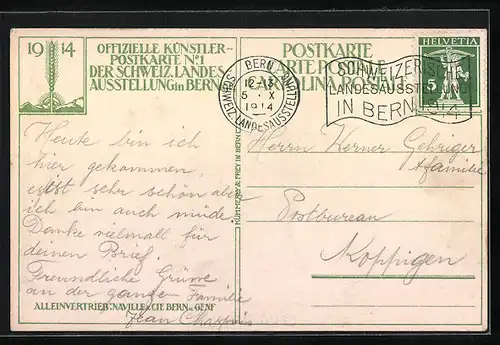 19 14
OFFIZIELLE KÜNSTLER-
POSTKARTE Nº1
DER SCHWEIZ. LANDES
AUSSTELLUNG in BERN
POSTKARTE
CARTE POSTALE
BERN
12-13
5 · X
1914
SCHWEIZ. LANDESAUSSTELLUNG
SCHWEIZERISCHE
LANDESAUSSTELLUNG
IN BERN 1914
HELVETIA
5
Heute bin ich
hier gekommen,
es ist sehr schön aber
ich bin auch müde.
Danke vielmalt für
deinen Brief.
Freundliche Grüsse
an der ganzen Familie
Jean
ALLEINVERTRIEB: NAVILLE & CIE BERN u. GENF
KÜMMERLY & FREY IN BERN
Herrn Werner Gehriger
& familie
Postbureau
Koppigen